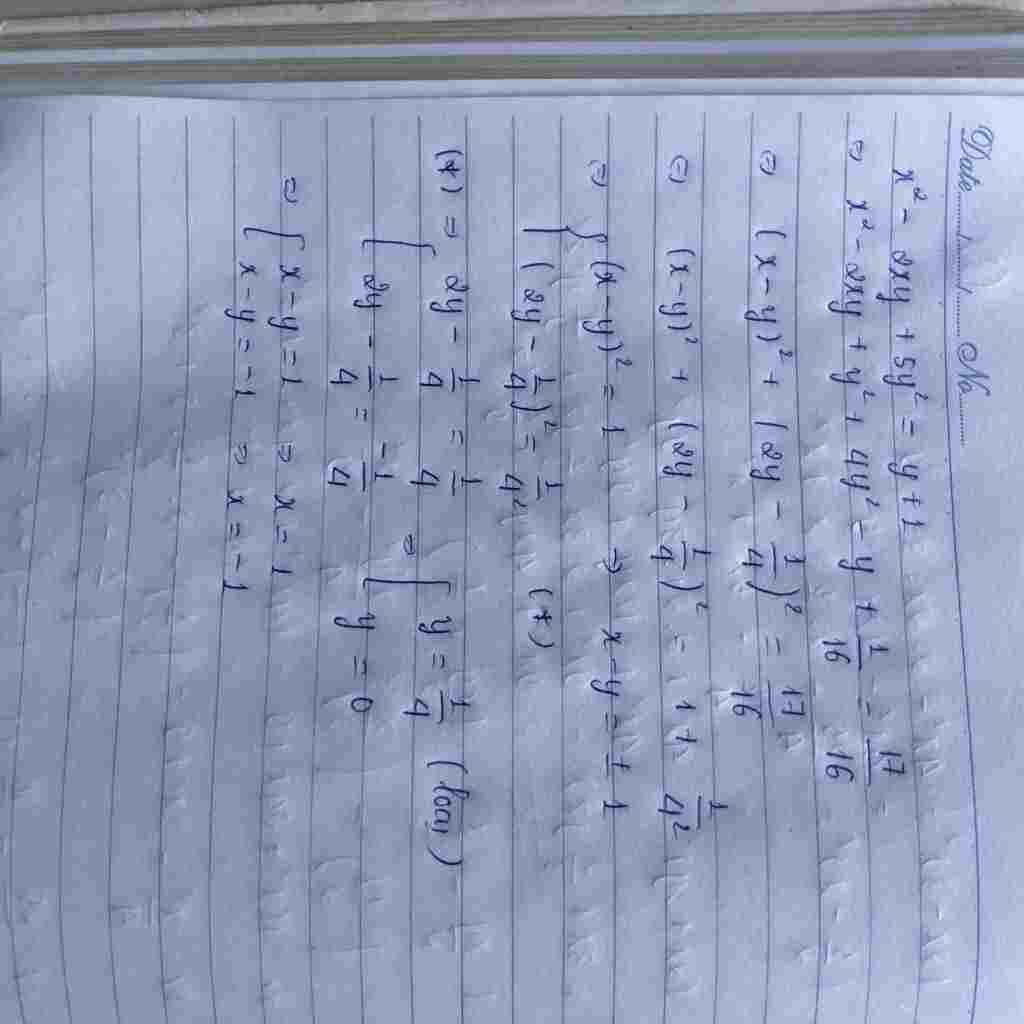 Date ...../...../..... No.....
x² - 2xy + 5y² = y + 1
⇔ x² - 2xy + y² + 4y² - y + 1/16 = 17/16
⇔ (x - y)² + (2y - 1/4)² = 17/16
⇔ (x - y)² + (2y - 1/4)² = 1 + 1/4²
⇔ { (x - y)² = 1 ⇒ x - y = ± 1
(2y - 1/4)² = 1/4² (*)
(*) ⇒ [ 2y - 1/4 = 1/4 ⇒ [ y = 1/4 (loại)
2y - 1/4 = -1/4 y = 0
⇒ [ x - y = 1 ⇒ x = 1
x - y = -1 ⇒ x = -1